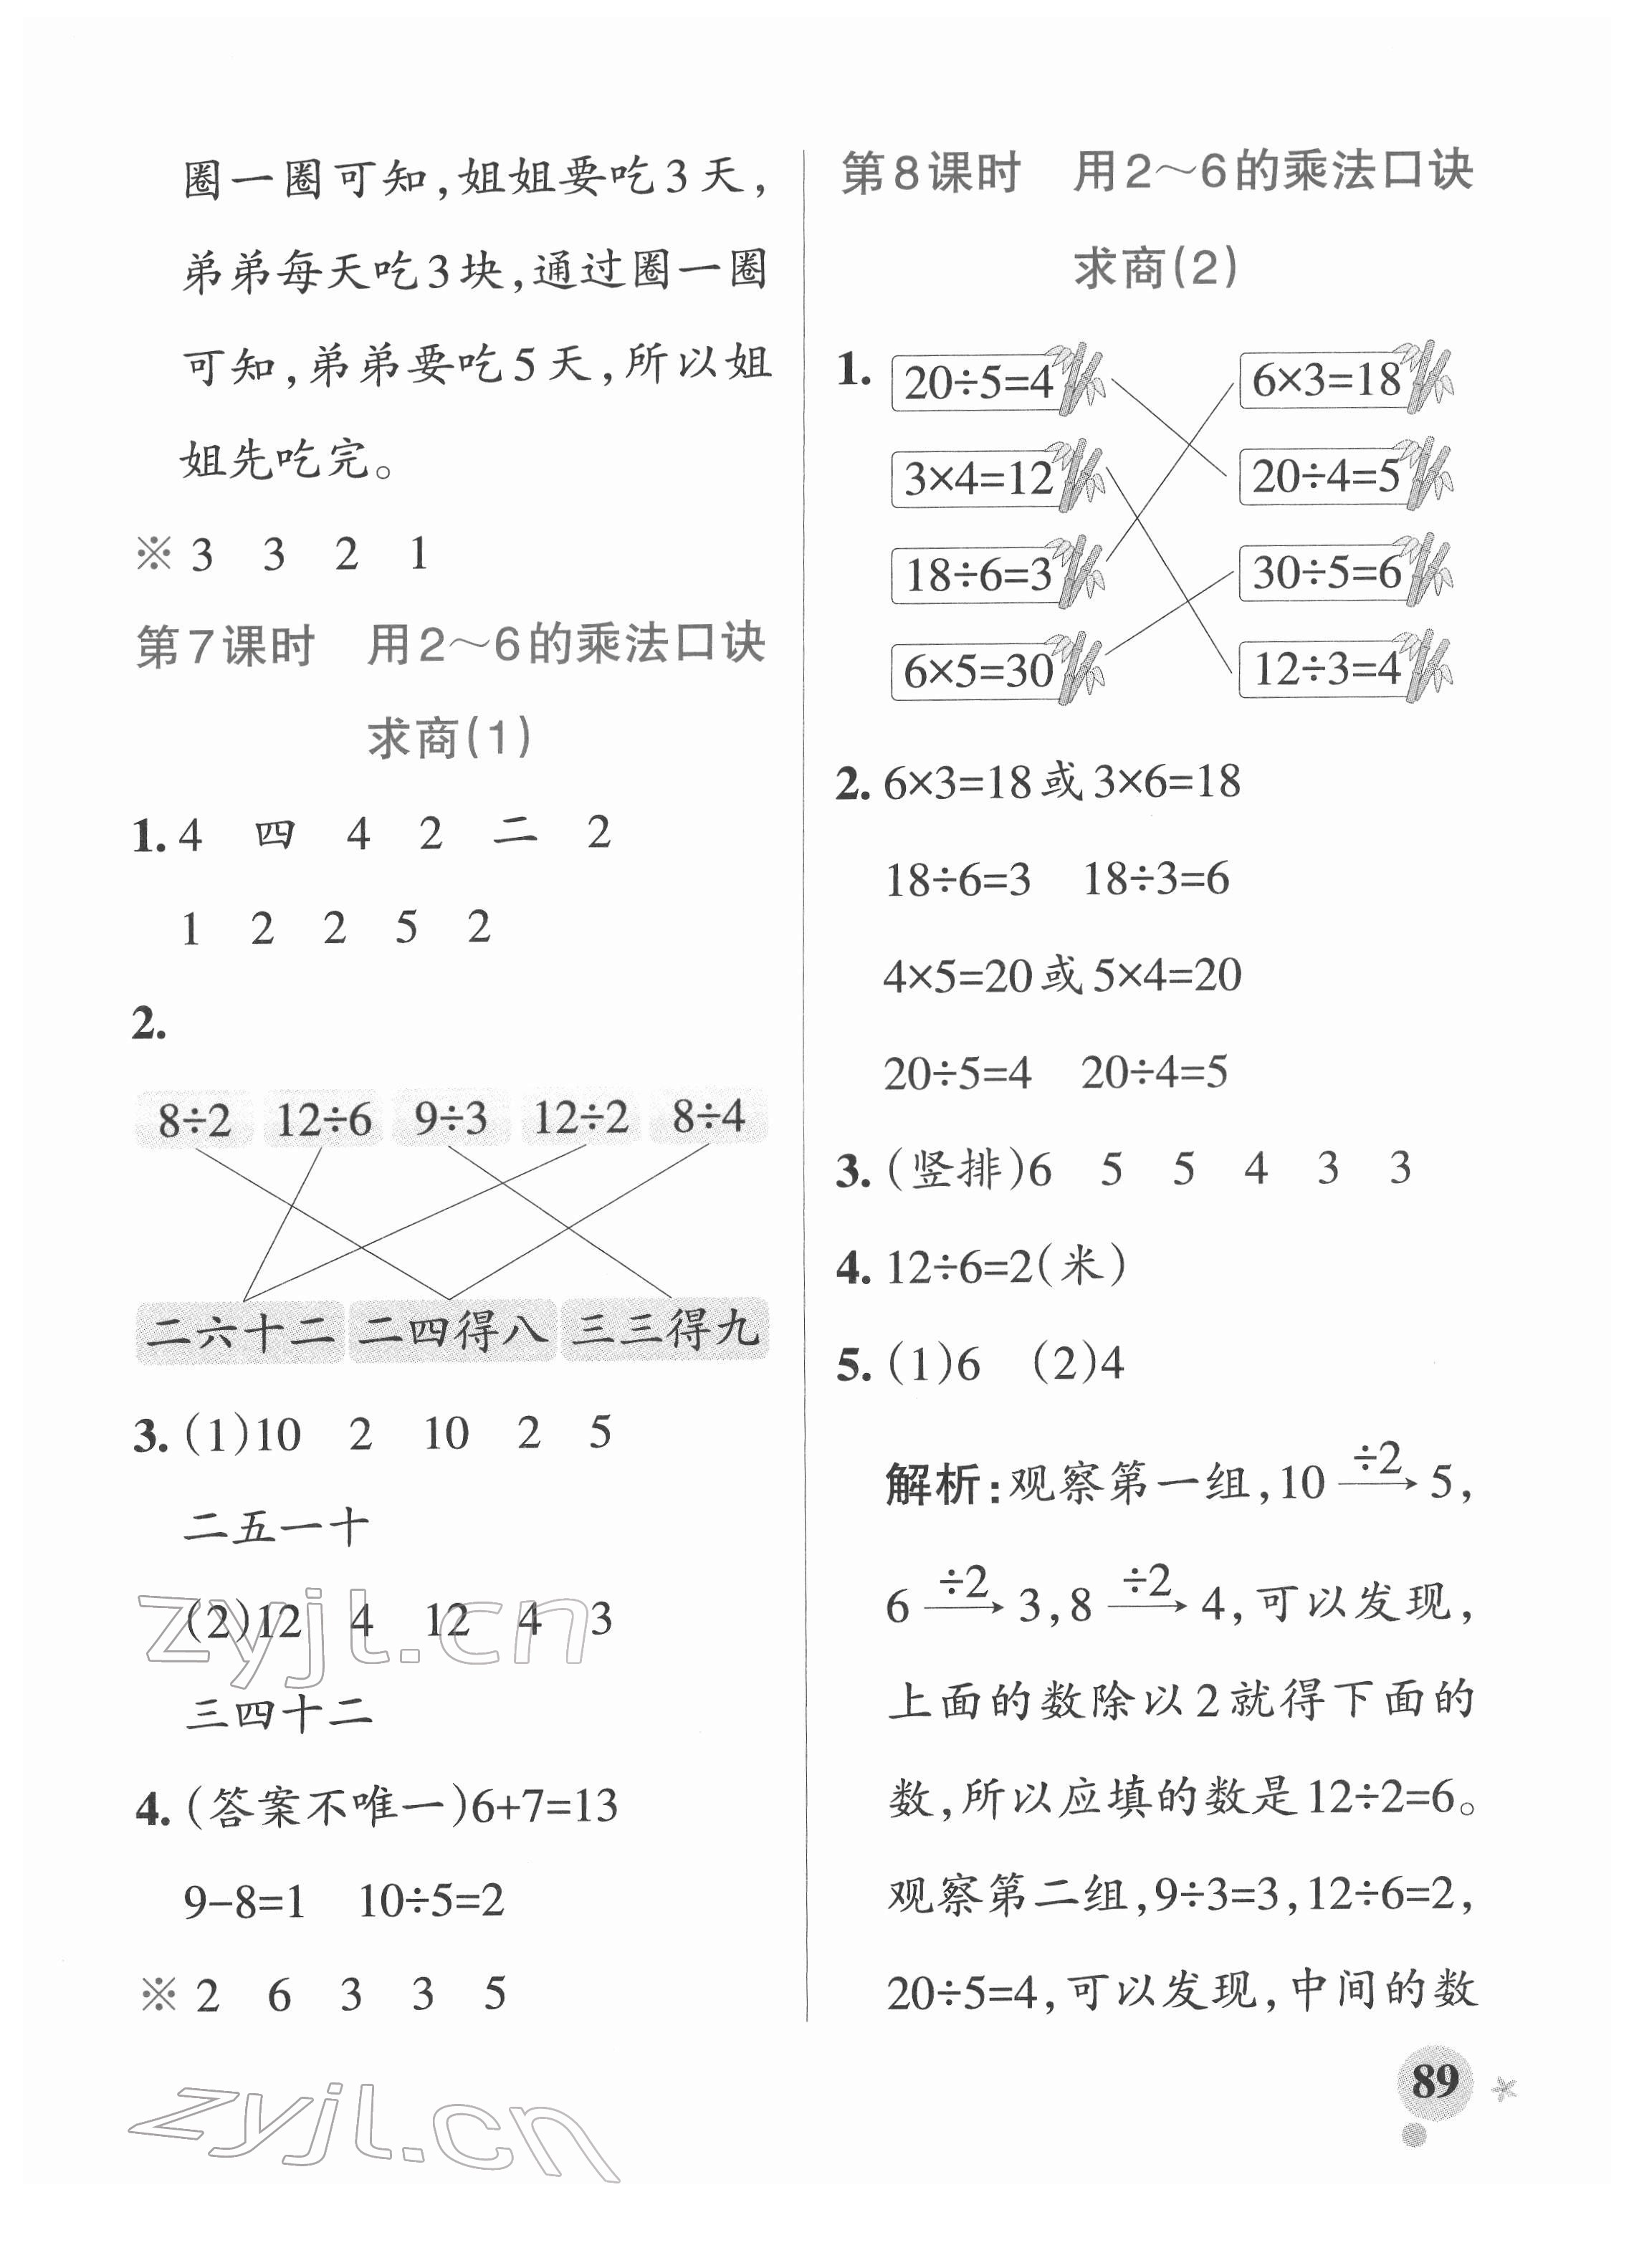 圈一圈可知,姐姐要吃3天,
弟弟每天吃3块,通过圈一圈
可知,弟弟要吃5天,所以姐
姐先吃完。
※ 3 3 2 1
第7课时 用2～6的乘法口诀
求商(1)
1. 4 四 4 2 二 2
1 2 2 5 2
2.
8÷2 12÷6 9÷3 12÷2 8÷4
二六十二 二四得八 三三得九
3. (1)10 2 10 2 5
二五一十
(2)12 4 12 4 3
三四十二
4. (答案不唯一)6+7=13
9-8=1 10÷5=2
※ 2 6 3 3 5
第8课时 用2～6的乘法口诀
求商(2)
1. 20÷5=4 6×3=18
3×4=12 20÷4=5
18÷6=3 30÷5=6
6×5=30 12÷3=4
2. 6×3=18或3×6=18
18÷6=3 18÷3=6
4×5=20或5×4=20
20÷5=4 20÷4=5
3. (竖排)6 5 5 4 3 3
4. 12÷6=2(米)
5. (1)6 (2)4
解析:观察第一组,10 ÷2→ 5,
6 ÷2→ 3,8 ÷2→ 4,可以发现,
上面的数除以2就得下面的
数,所以应填的数是12÷2=6。
观察第二组,9÷3=3,12÷6=2,
20÷5=4,可以发现,中间的数
89
zyjl.cn
zyjl.cn